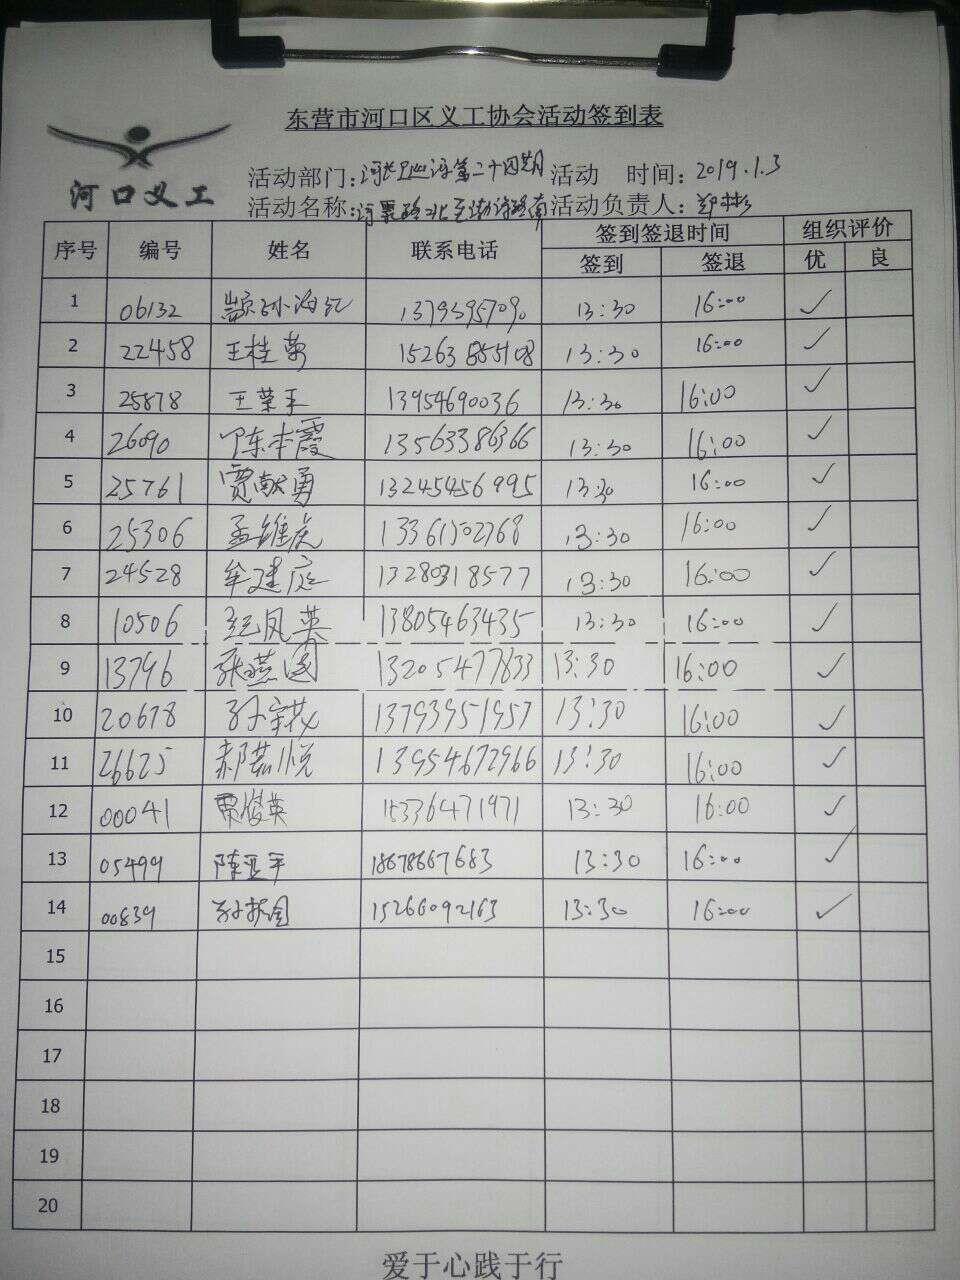 东营市河口区义工协会活动签到表
河口义工
活动部门：河长巡河第二十四期 活动 时间：2019.1.3
活动名称：河 路北至渤海路南 活动负责人：郑彬
序号 编号 姓名 联系电话 签到签退时间 组织评价
签到 签退 优 良
1 06132 颛孙海 13795957090 13:30 16:00 ✓
2 22458 王桂荣 15263855108 13:30 16:00 ✓
3 25878 王荣 13954690036 13:30 16:00 ✓
4 26090 陈本霞 13563386366 13:30 16:00 ✓
5 25761 贾献勇 13245456995 13:30 16:00 ✓
6 25306 孟维庆 13361502768 13:30 16:00 ✓
7 24528 牟建庭 13280318577 13:30 16:00 ✓
8 10506 纪凤英 13805463435 13:30 16:00 ✓
9 13796 张燕 13205477833 13:30 16:00 ✓
10 20678 孙 13793951957 13:30 16:00 ✓
11 26625 郝若悦 13954672966 13:30 16:00 ✓
12 00041 贾俊英 15336471971 13:30 16:00 ✓
13 05499 陈亚平 18678667683 13:30 16:00 ✓
14 00839 孙振国 15266092163 13:30 16:00 ✓
15
16
17
18
19
20
爱于心践于行